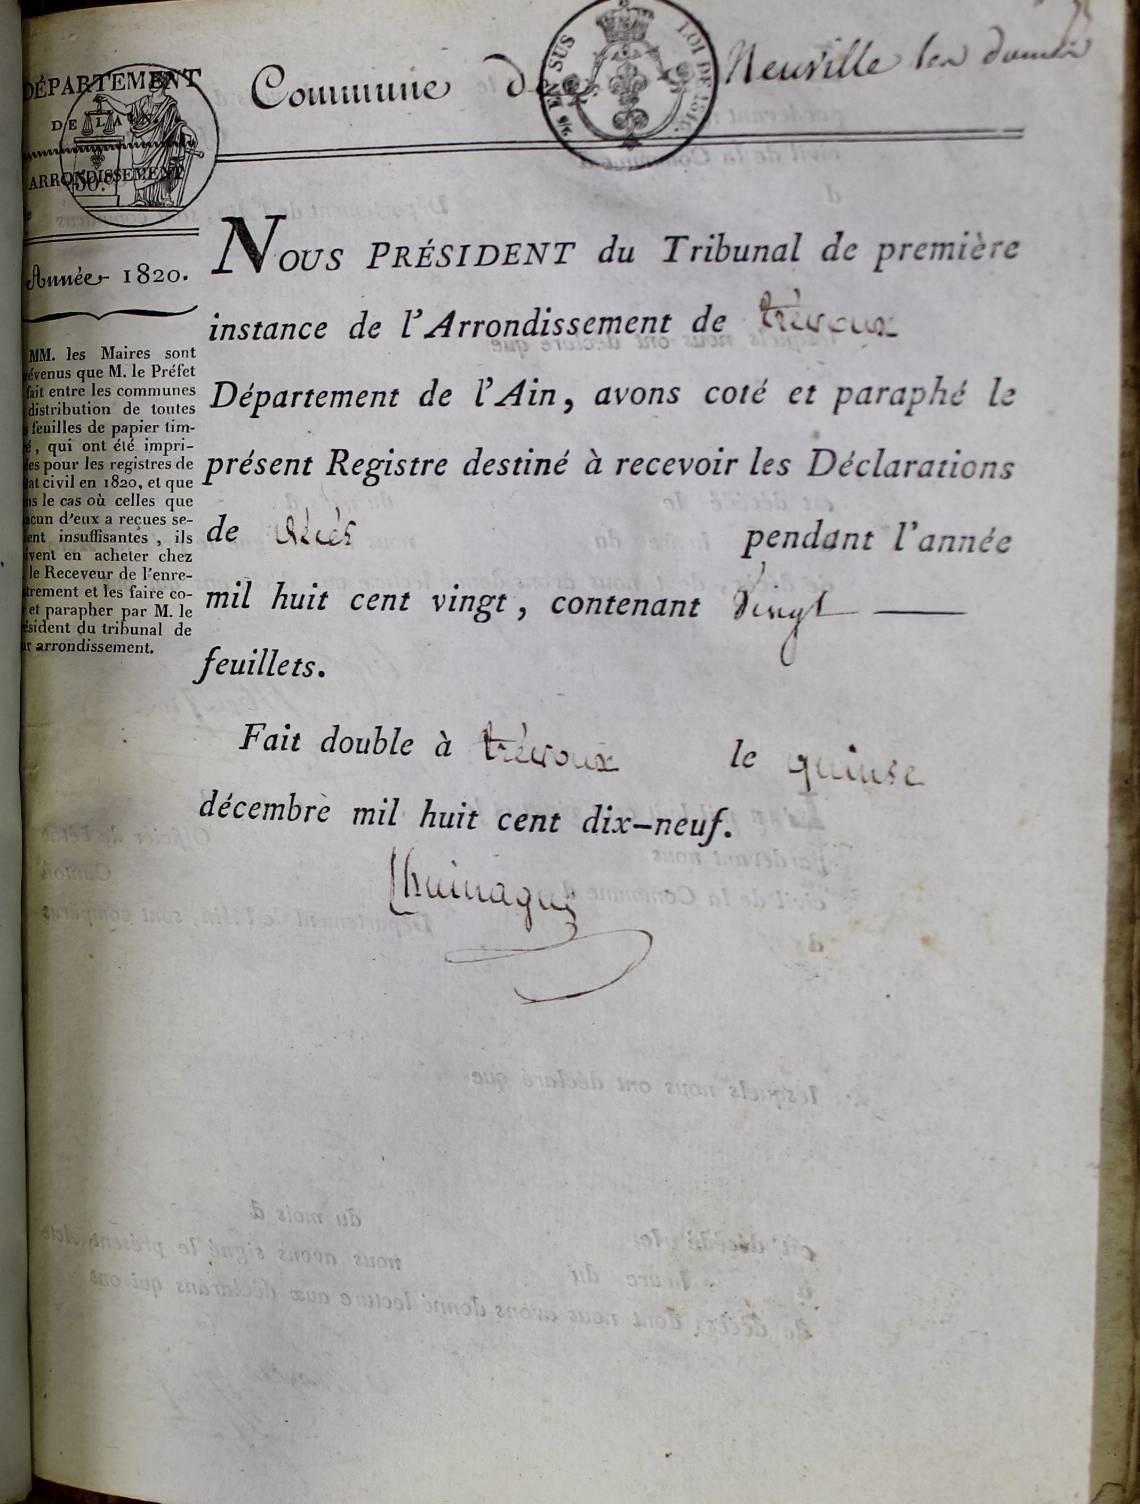 DÉPARTEMENT
DE L'AIN.
ARRONDISSEMENT
Commune de Neuville les dames
EN SUS
LOI DE 1816.
Année 1820.
MM. les Maires sont
évenus que M. le Préfet
fait entre les communes
distribution de toutes
s feuilles de papier tim-
é, qui ont été impri-
ées pour les registres de
at civil en 1820, et que
ns le cas où celles que
acun d'eux a reçues se-
ent insuffisantes, ils
ivent en acheter chez
le Receveur de l'enre-
trement et les faire co-
et parapher par M. le
ésident du tribunal de
r arrondissement.
NOUS PRÉSIDENT du Tribunal de première
instance de l'Arrondissement de trévoux
Département de l'Ain, avons coté et paraphé le
présent Registre destiné à recevoir les Déclarations
de décés pendant l'année
mil huit cent vingt, contenant vingt
feuillets.
Fait double à trévoux le quinse
décembre mil huit cent dix-neuf.